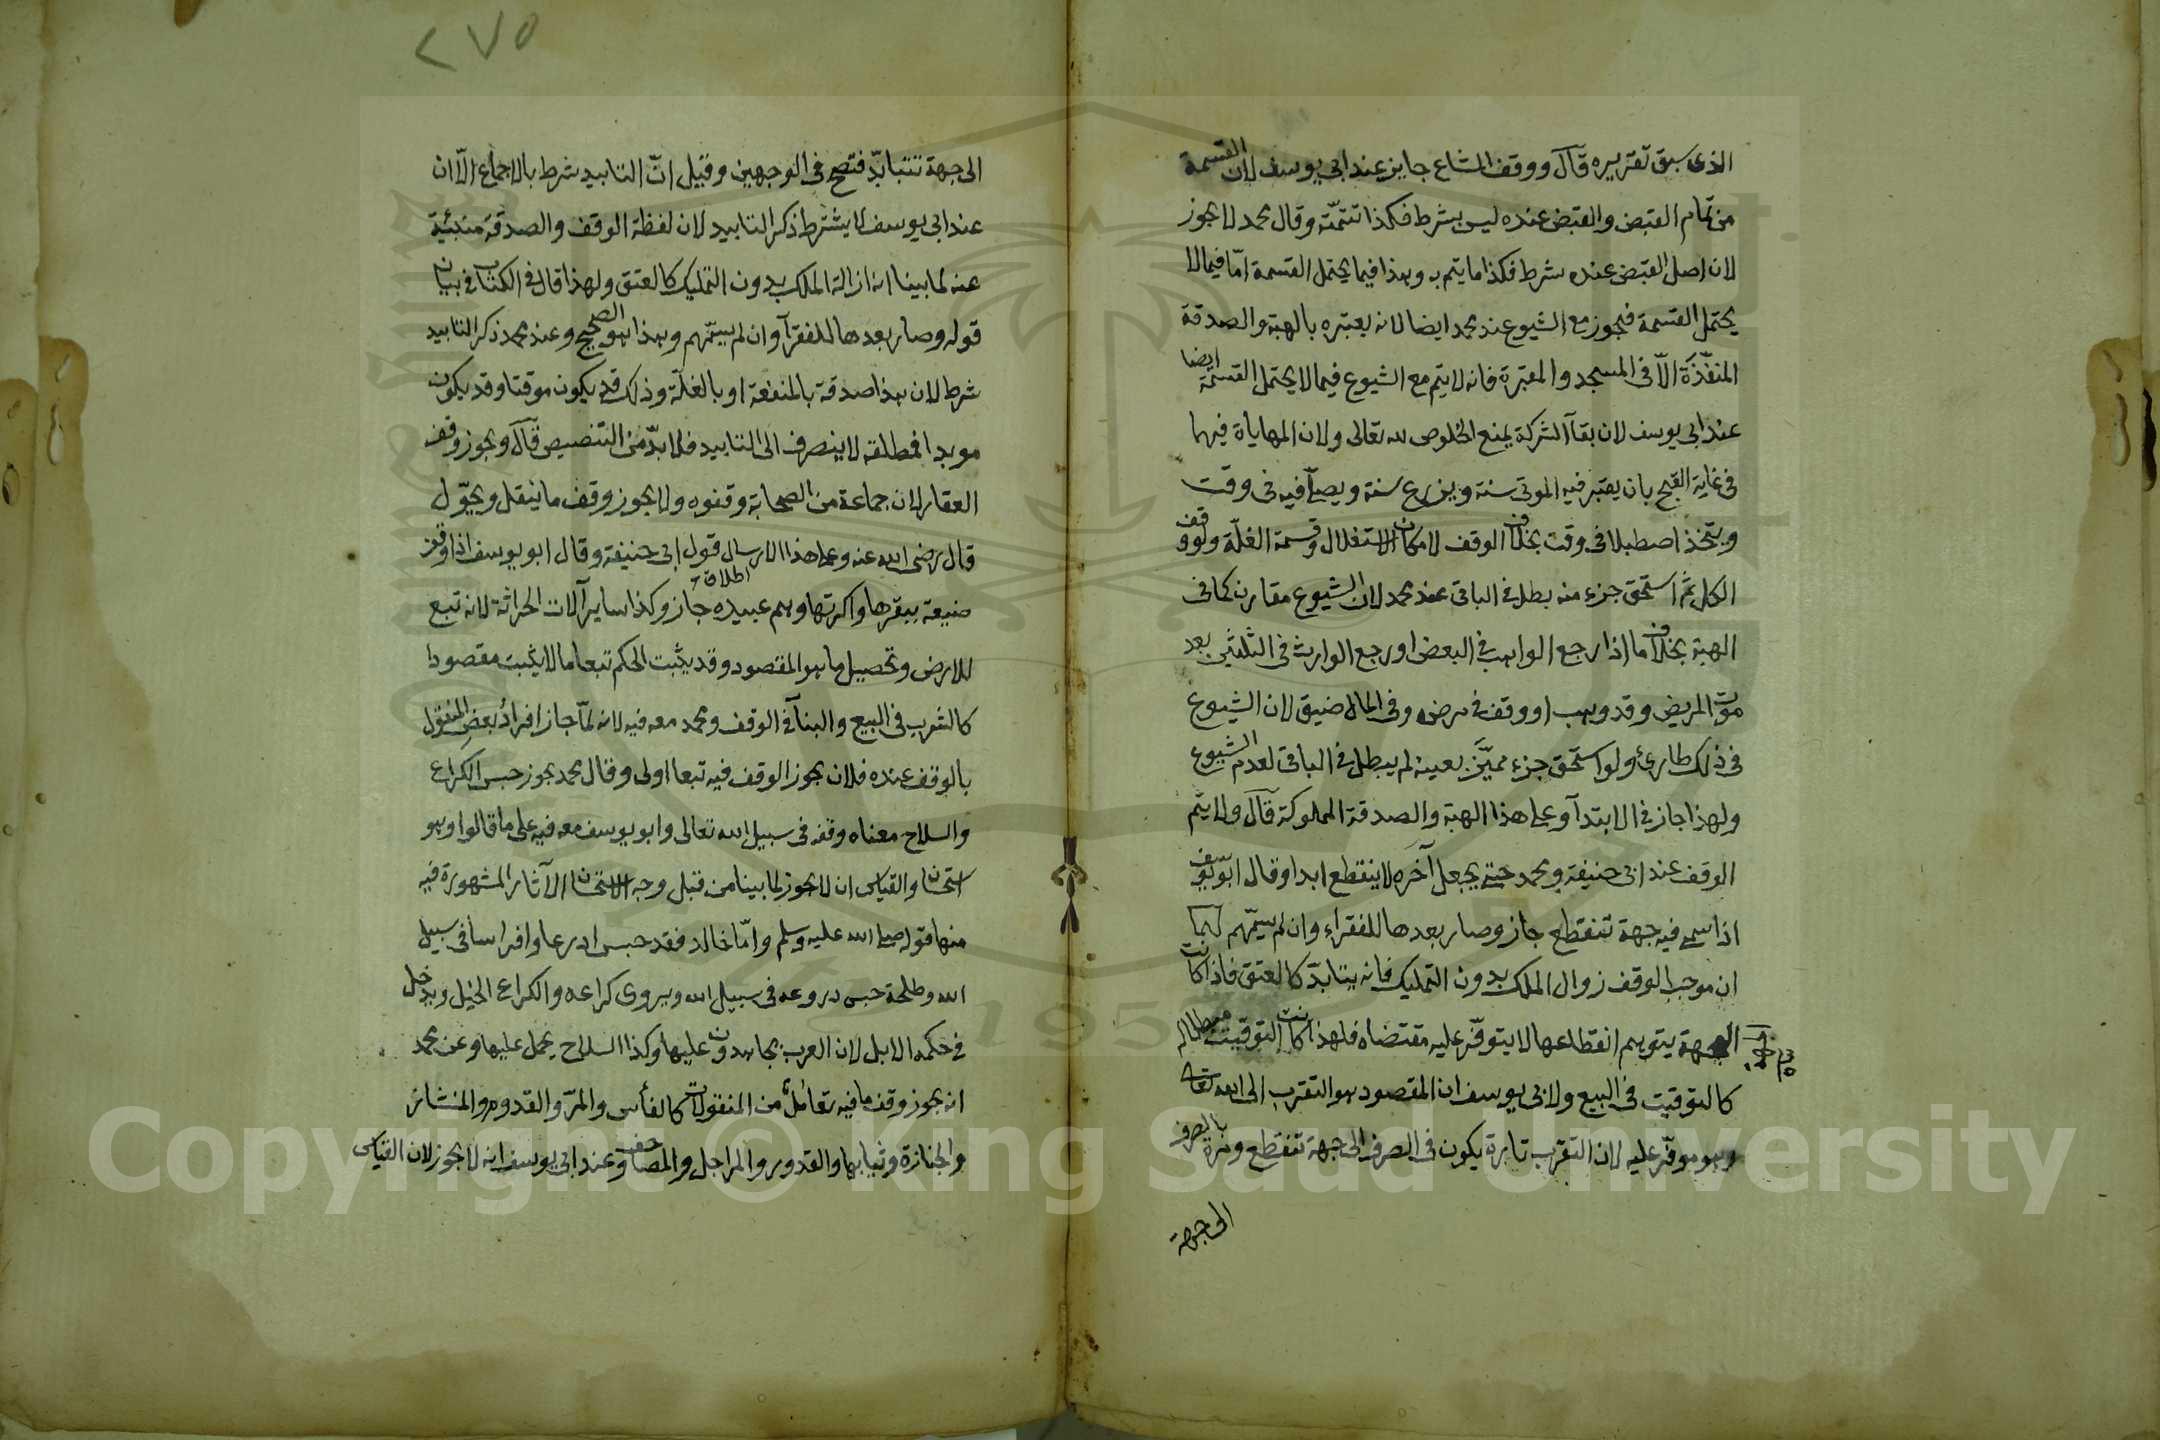 ٢٧٥
الذى سبق تقريره قال ووقف المشاع جايز عند ابى يوسف لان القسمة
من تمام القبض والقبض عنده ليس بشرط فكذا تتمته وقال محمد لا يجوز
لان اصل القبض عنده شرط فكذا ما يتم به وهذا فيما يحتمل القسمة امّا فيما لا
يحتمل القسمة فيجوز مع الشيوع عند محمد ايضا لانه يعتبره بالهبة والصدقة
المنفّذة الّا فى المسجد والمقبرة فانه لا يتم مع الشيوع فيما لا يحتمل القسمة ايضا
عند ابى يوسف لان بقآ الشركة يمنع الخلوص لله تعالى ولان المهاياة فيهما
فى غاية القبح بان يقبر فيه الموتى سنة ويزرع سنة ويصلّى فيه فى وقت
ويتّخذ اصطبلا فى وقت بخلاف الوقف لامكان الاستغلال وقسمة الغلّة ولو وقف
الكل ثمّ استحق جزء منه بطل فى الباقى عند محمد لان الشيوع مقارن كما فى
الهبة بخلاف ما اذا رجع الواهب فى البعض او رجع الوارث فى الثلثين بعد
موت المريض وقد وهب او وقف فى مرضه وفى المال ضيق لان الشيوع
فى ذلك طارئ ولو استحق جزء مميّز بعينه لم يبطل فى الباقى لعدم الشيوع
ولهذا جاز فى الابتدآ وعلى هذا الهبة والصدقة المملوكة قال ولا يتم
الوقف عند ابى حنيفة ومحمد حتى يجعل آخره لا ينقطع ابدا وقال ابو يوسف
اذا سمى فيه جهة تنقطع جاز وصار بعدها للفقراء وان لم يسمّهم لهما
ان موجب الوقف زوال الملك بدون التمليك فانه يتابّد كالعتق فاذا كانت
الجهة يتوهم انقطاعها لا يتوفّر عليه مقتضاه فلهذا كانت التوقيت مبطلا له
كالتوقيت فى البيع ولابى يوسف ان المقصود هو التقرب الى الله تعالى
وهو موفّر عليه لان التقرب تارة يكون فى الصرف الى جهة تنقطع ومرة بالصرف
الى جهة
الى جهة تتبابّد فتصح فى الوجهين وقيل انّ التابيد شرط بالاجماع الّا ان
عند ابى يوسف لا يشترط ذكر التابيد لان لفظة الوقف والصدقة منبئية
عنه لما بينا انه ازالة الملك بدون التمليك كالعتق ولهذا قال فى الكتاب فى بيان
قوله وصار بعدها للفقرآ وان لم يسمّهم وهذا هو الصحيح وعند محمد ذكر التابيد
شرط لان هذا صدقة بالمنفعة او بالغلّة وذلك قد يكون موقتا وقد يكون
موبدا فمطلقه لا ينصرف الى التابيد فلا بدّ من التنصيص قال ويجوز وقف
العقار لان جماعة من الصحابة وقفوه ولا يجوز وقف ما ينقل ويحوّل
قال رضى الله عنه وعلى هذا الارسال قول ابى حنيفة وقال ابو يوسف اذا وقف
اطلاق
ضيعة ببقرها واكرتها وهم عبيده جاز وكذا ساير آلات الحراثة لانه تبع
للارض وتحصيل ما هو المقصود وقد يثبت الحكم تبعا ما لا يثبت مقصودا
كالشرب فى البيع والبنآ فى الوقف ومحمد معه فيه لانه لمّا جاز افراد بعض المنقول
بالوقف عنده فلان يجوز الوقف فيه تبعا اولى وقال محمد يجوز حبس الكراع
والسلاح معناه وقفه فى سبيل الله تعالى وابو يوسف معه فيه على ما قالوا وهو
استحسان والقياس ان لا يجوز لما بينا من قبل وجه الاستحسان الآثار المشهورة فيه
منها قوله صلى الله عليه وسلم وامّا خالد فقد حبس ادرعا وافراسا فى سبيل
الله وطلحة حبس دروعه فى سبيل الله ويروى كراعه والكراع الخيل ويدخل
فى حكمه الابل لان العرب يجاهدون عليها وكذا السلاح يحمل عليها وعن محمد
انه يجوز وقف ما فيه تعامل من المنقولات كالفأس والمرّ والقدوم والمنشار
والجنازة وثيابها والقدور والمراجل والمصاحف وعند ابى يوسف انه لا يجوز لان القياس
Copyright © King Saud University
1957